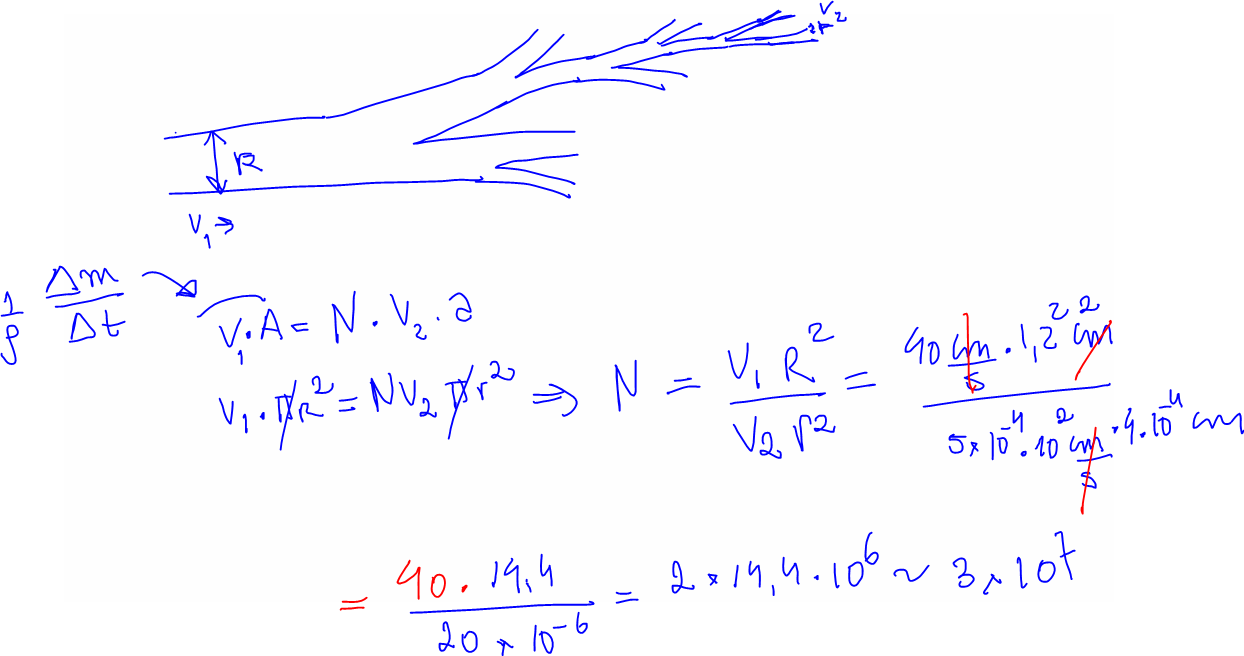 V₂
r
R
V₁ →
1/ρ Δm/Δt
V₁·A = N·V₂·a
V₁·πR² = NV₂πr² ⇒ N = V₁R² / V₂r² = 40 cm/s · 1,2² cm² / 5×10⁻⁴·10² cm/s · 4·10⁻⁴ cm
= 40·14,4 / 20×10⁻⁶ = 2×14,4·10⁶ ~ 3×10⁷